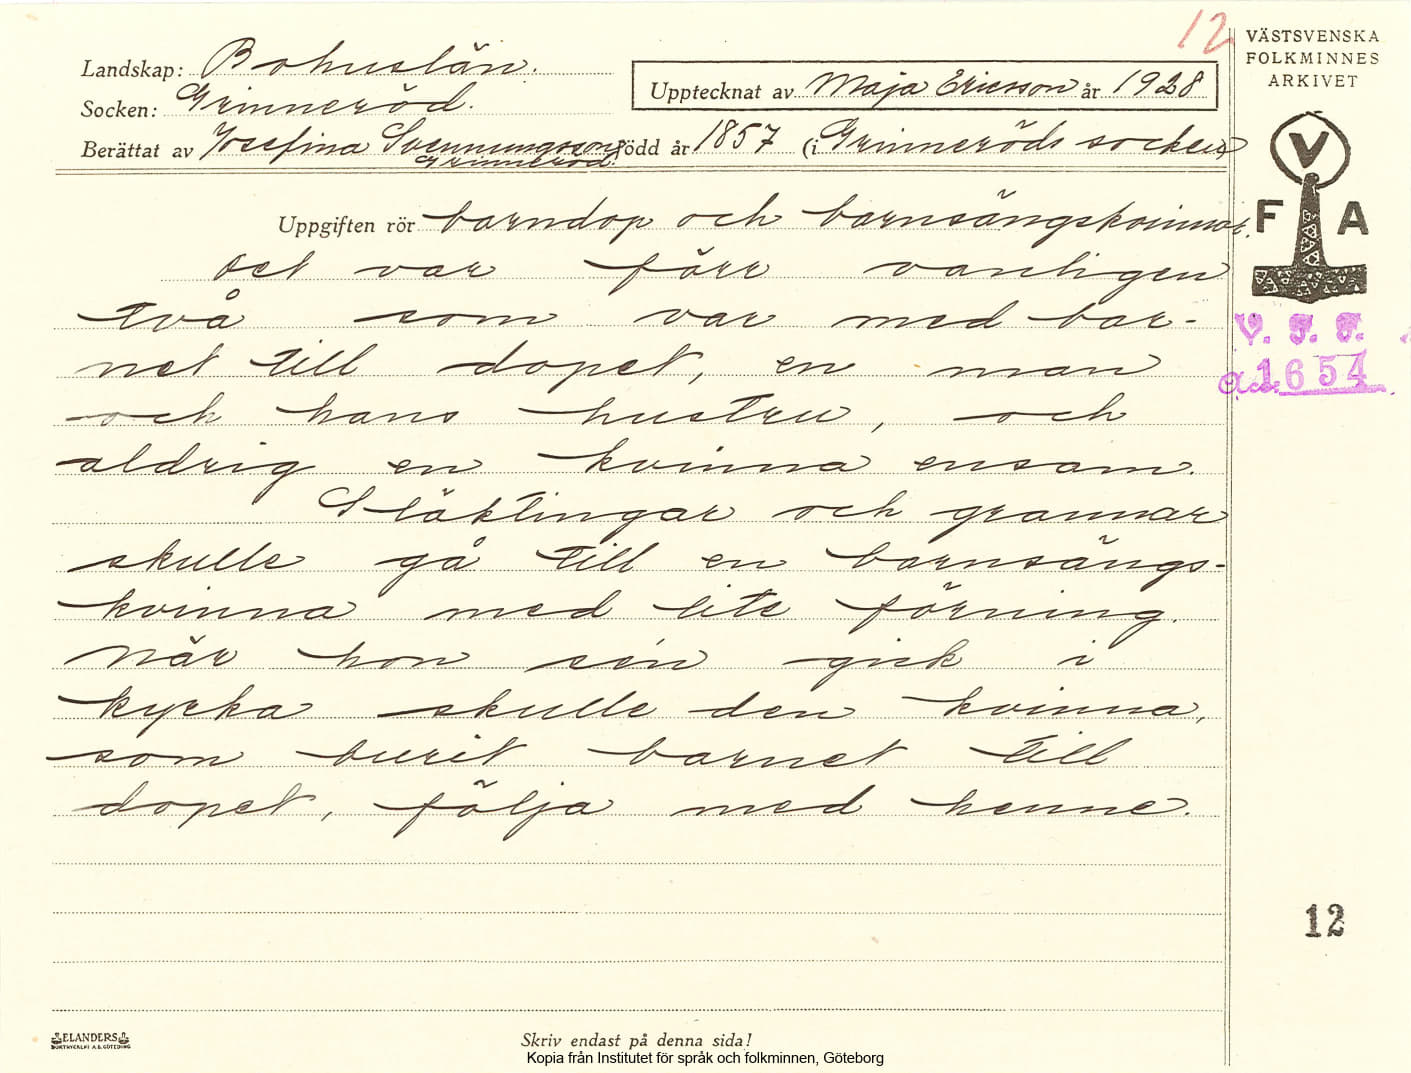 12
VÄSTSVENSKA
FOLKMINNES
ARKIVET
Landskap: Bohuslän.
Socken: Grinneröd.
Upptecknat av Maja Ericsson år 1928
Berättat av Josefina Svenningsson född år 1857 (i Grinneröds socken)
Grinneröd.
V
F A
Uppgiften rör barndop och barnsängskvinnor.
Det var förr vanligen
två som var med bar-
net till dopet, en man
och hans hustru, och
aldrig en kvinna ensam.
Släktingar och grannar
skulle gå till en barnsängs-
kvinna med lite förning.
När hon sen gick i
kyrka skulle den kvinna,
som burit barnet till
dopet, följa med henne.
V. F. F.
Acc. 1654
12
ELANDERS
BOKTRYCKERI A.B. GÖTEBORG
Skriv endast på denna sida!
Kopia från Institutet för språk och folkminnen, Göteborg